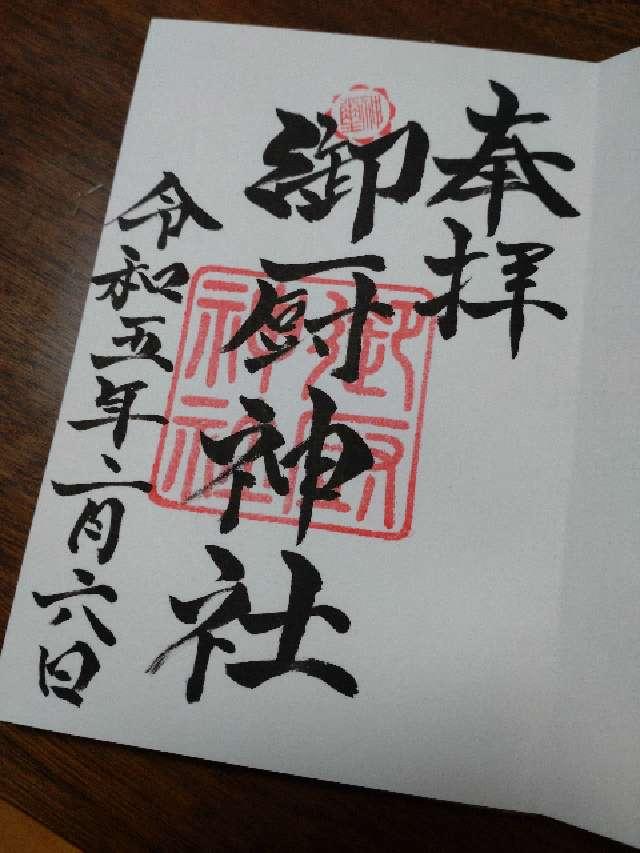 奉拝
御厨神社
令和五年二月六日
御厨神社